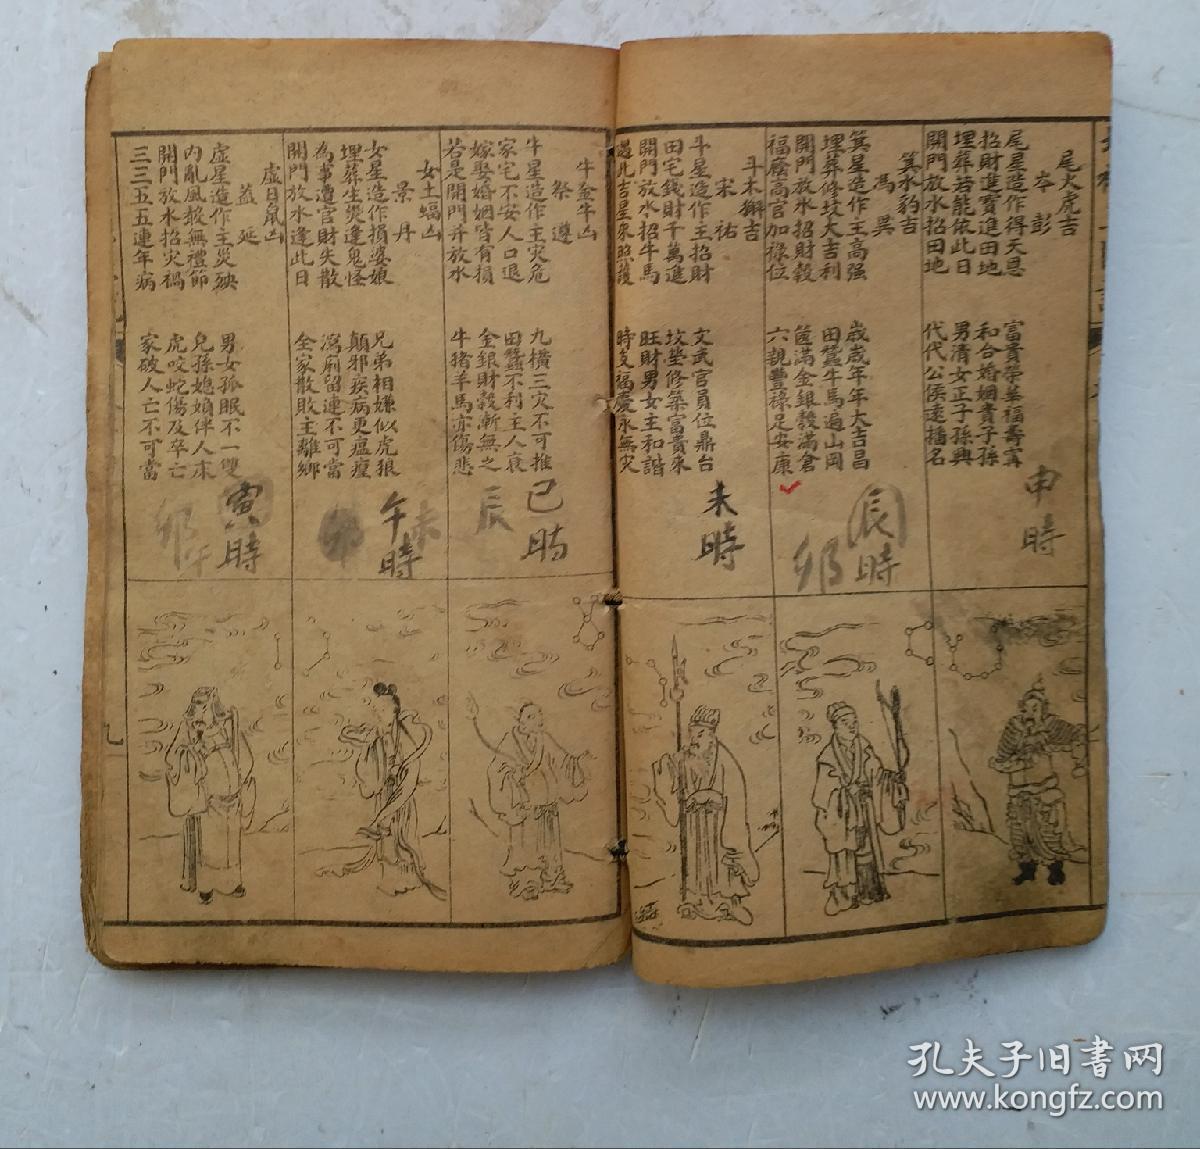 尾火虎吉
岑彭
尾星造作得天恩
招財進寶進田地
埋葬若能依此日
開門放水招田地
富貴榮華福壽寧
和合婚姻貴子孫
男清女正子孫興
代代公侯遠播名
申時
箕水豹吉
馮異
箕星造作主高强
埋葬修坟大吉利
開門放水招財穀
福廕高官加祿位
歲歲年年大吉昌
田蠶牛馬遍山岡
箇滿金銀穀滿倉
六親豐祿足安康
辰時
卯
斗木獬吉
宋祐
斗星造作主招財
田宅錢財千萬進
開門放水招牛馬
遇此吉星來照護
文武官員位鼎台
坟塋修築富貴來
旺財男女主和諧
時支福慶永無災
未時
牛金牛凶
祭遵
牛星造作主灾危
家宅不安人口退
嫁娶婚姻皆有損
若是開門并放水
九橫三灾不可推
田蠶不利主人衰
金銀財穀漸無之
牛猪羊馬亦傷悲
巳時
辰
女土蝠凶
景丹
女星造作損婆娘
埋葬生災逢鬼怪
為事遭官財失散
開門放水逢此日
兄弟相嫌似虎狼
顛邪疾病更瘟瘟
瀉痢留連不可當
全家散敗主離鄉
未
午時
卯
虛日鼠凶
蓋延
虛星造作主災殃
內亂風掀無禮節
開門放水招灾禍
三三五五連年病
男女孤眠不一雙
兒孫媳婦伴人床
虎咬蛇傷及卒亡
家破人亡不可當
寅時
卯
午
孔夫子旧書网
www.kongfz.com